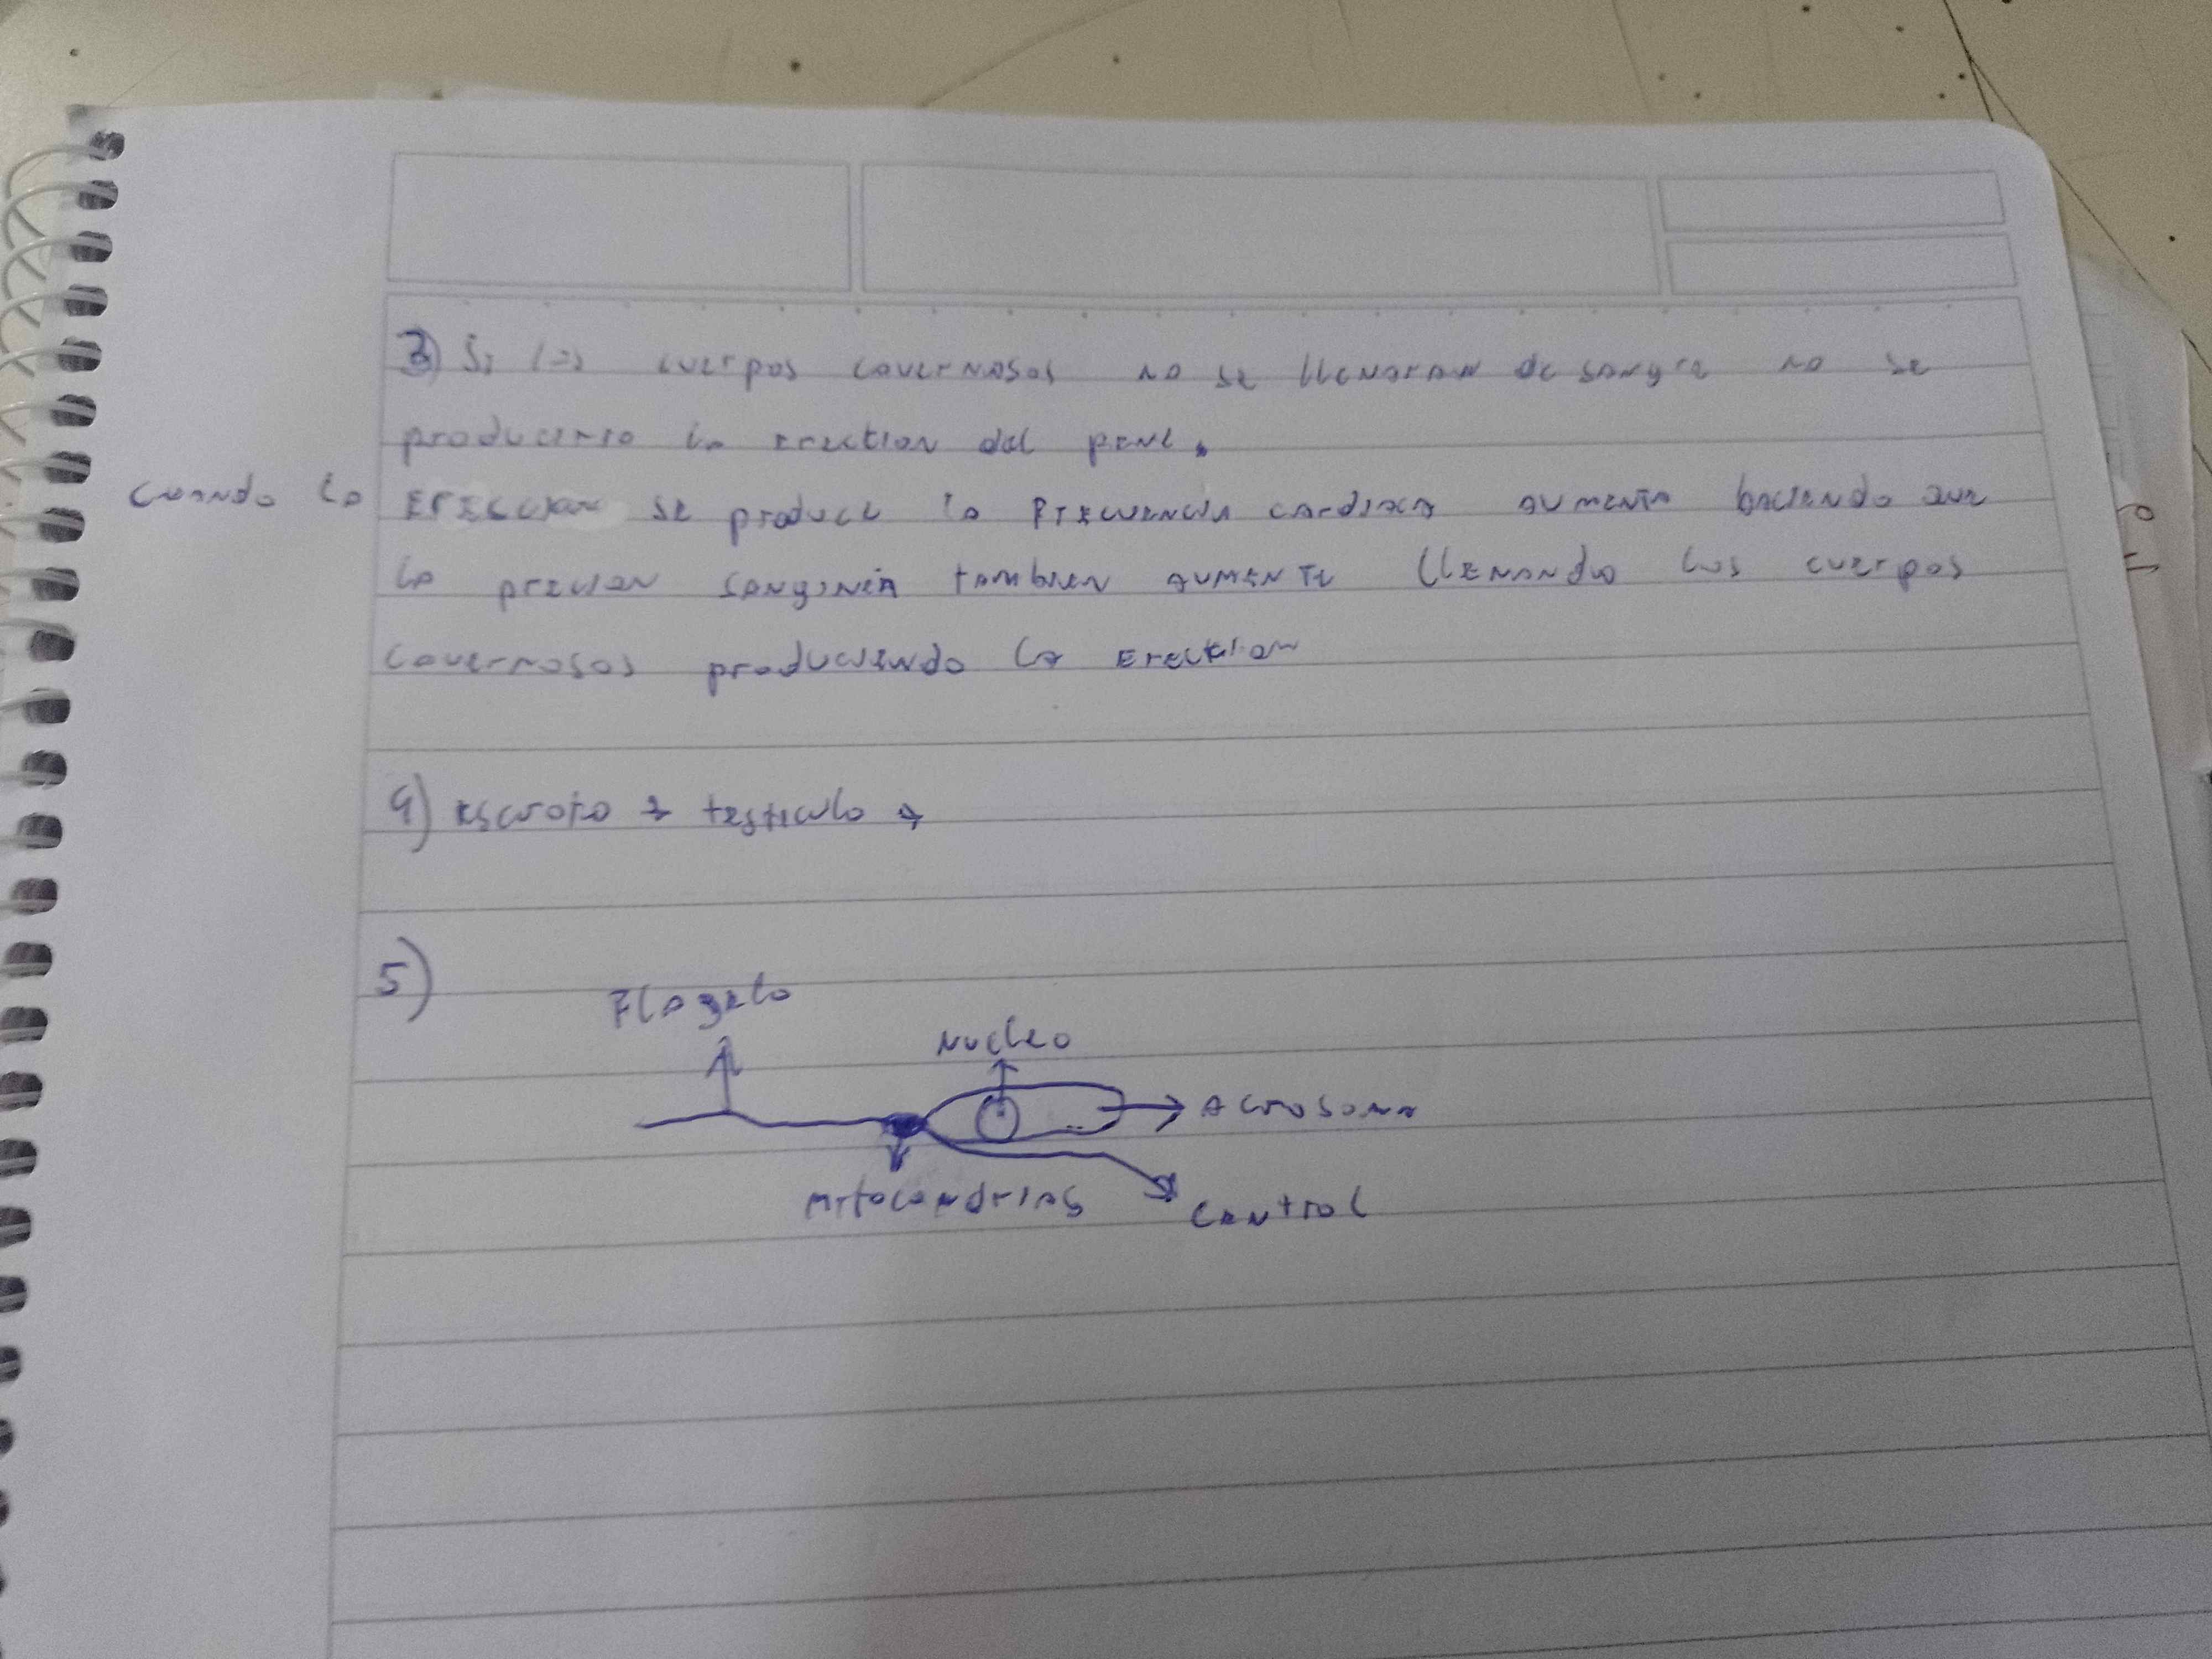 3) Si los cuerpos cavernosos no se llenaran de sangre no se
produciria la erection del pene.
Cuando la EreSCion se produce la Frecuencia cardiaca aumenta haciendo que
la precion sanginea tambien aumente llenando los cuerpos
cavernosos produciendo la Erection
4) Escroto → testiculo →
5)
Flagelo
Nucleo
Acrosoma
Mitocondrias
Central